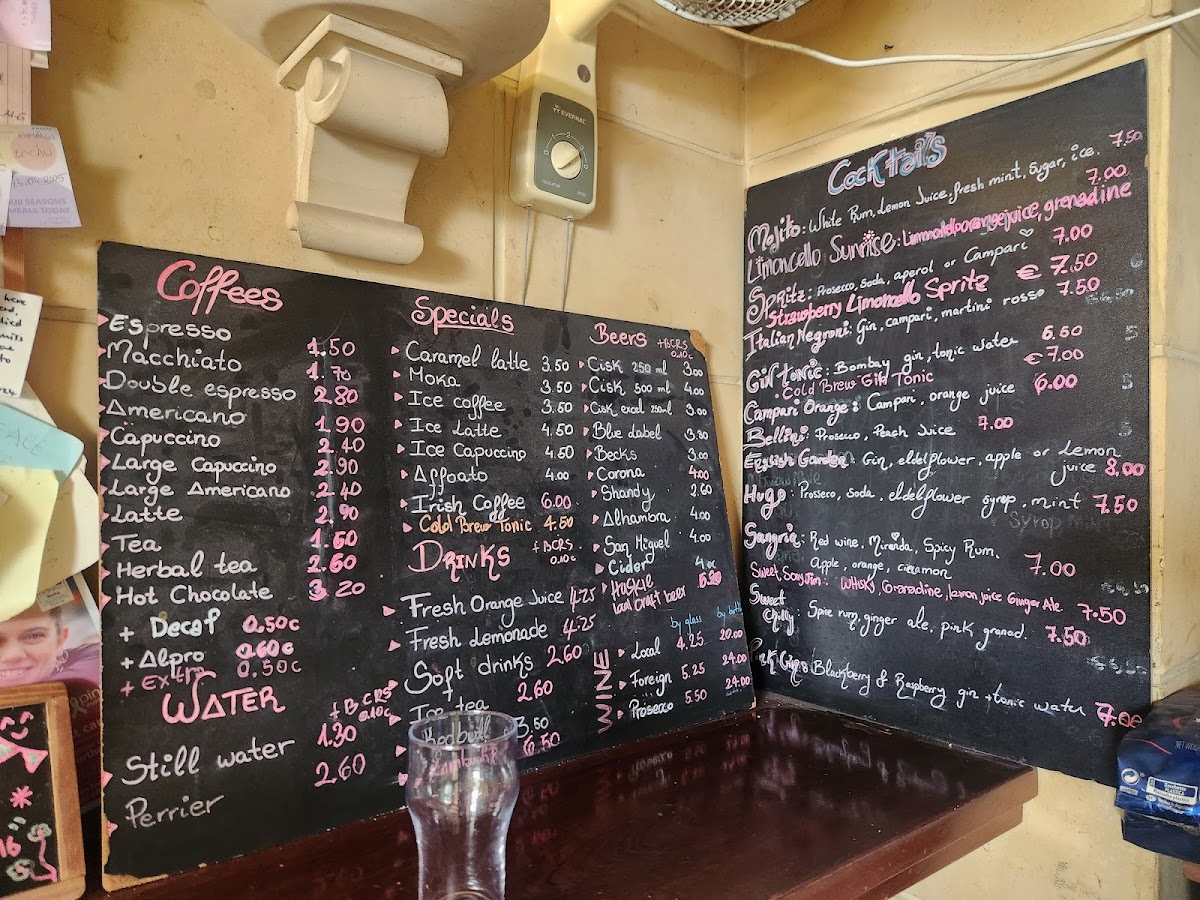 Coffees
Espresso 1.50
Macchiato 1.70
Double espresso 2.80
Americano 1.90
Capuccino 2.40
Large Capuccino 2.90
Large Americano 2.40
Latte 2.90
Tea 1.60
Herbal tea 2.60
Hot Chocolate 3.20
+ Decaf 0.50c
+ Alpro 0.60c
+ Extra 0.50c
WATER
+ BCRS
0.10c
Still water 1.30
Perrier 2.60
Specials
Caramel latte 3.50
Moka 3.50
Ice coffee 3.50
Ice Latte 4.50
Ice Capuccino 4.50
Affoato 4.00
Irish Coffee 6.00
Cold Brew Tonic 4.50
DRINKS
+ BCRS
0.10c
Fresh Orange Juice 4.25
Fresh Lemonade 4.25
Soft drinks 2.60
Ice tea 2.60
Redbull 3.50
Beers
+BCRS
0.10c
Cisk 250 ml 3.00
Cisk 500 ml 4.00
Cisk excel 250ml 3.00
Blue label 3.00
Becks 3.00
Corona 4.00
Shandy 2.60
Alhambra 4.00
San Miguel 4.00
Cider
local craft beer
by glass
WINE
Local 4.25 20.00
Foreign 5.25 24.00
Prosecco 5.50 24.00
Cocktails
Mojito: White Rum, Lemon Juice, fresh mint, sugar, ice. 7.50
Limoncello Sunrise: Limoncello orange juice, grenadine 7.00
Spritz: Prosecco, Soda, aperol or Campari 7.00
Strawberry Limoncello Spritz € 7.50
Italian Negroni: Gin, campari, martini rosso 7.50
Gin Tonic: Bombay gin, tonic water 6.50
Cold Brew Gin Tonic € 7.00
Campari Orange: Campari, orange juice 6.00
Bellini: Prosecco, Peach Juice 7.00
English Garden: Gin, eldelflower, apple or Lemon
juice 8.00
Hugo: Prosecco, soda, eldelflower syrop, mint 7.50
Sangria: Red wine, Miranda, Spicy Rum,
Apple, orange, cinamon 7.00
Ginger Ale 7.50
Sweet
Chilly: Spice rum, ginger ale, pink granad. 7.50
Blackberry & Raspberry gin + tonic water 7.00
EVERNAL